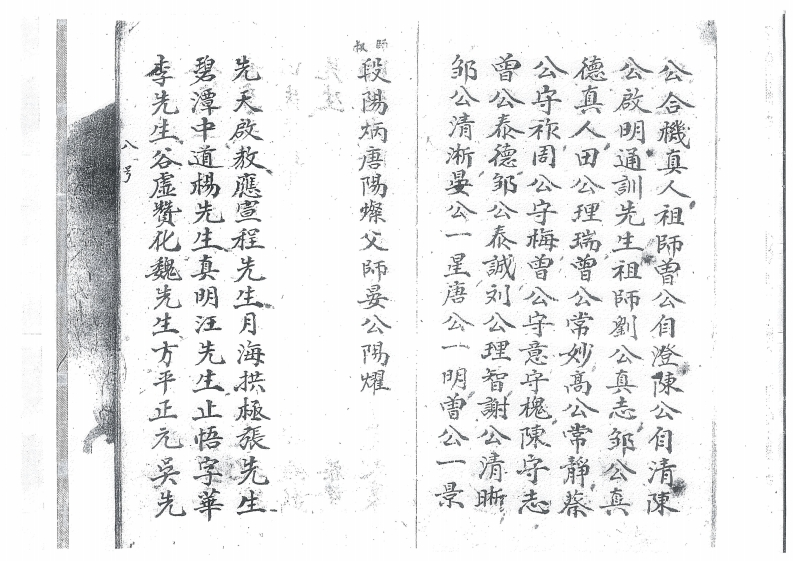 公合機真人祖師曾公自澄陳公自清陳
公啟明通訓先生祖師劉公真志邹公真
德真人田公理瑞曾公常妙高公常靜蔡
公守祚周公守梅曾公守意守槐陳守志
曾公泰德邹公泰誠刘公理智謝公清晰
邹公清淅晏公一星唐公一明曾公一景
師叔
段陽炳唐陽燦父師晏公陽燿
先天啟教應宣程先生月海拱極張先生
碧潭中道楊先生真明汪先生止悟字華
李先生谷虛贊化魏先生方平正元吳先